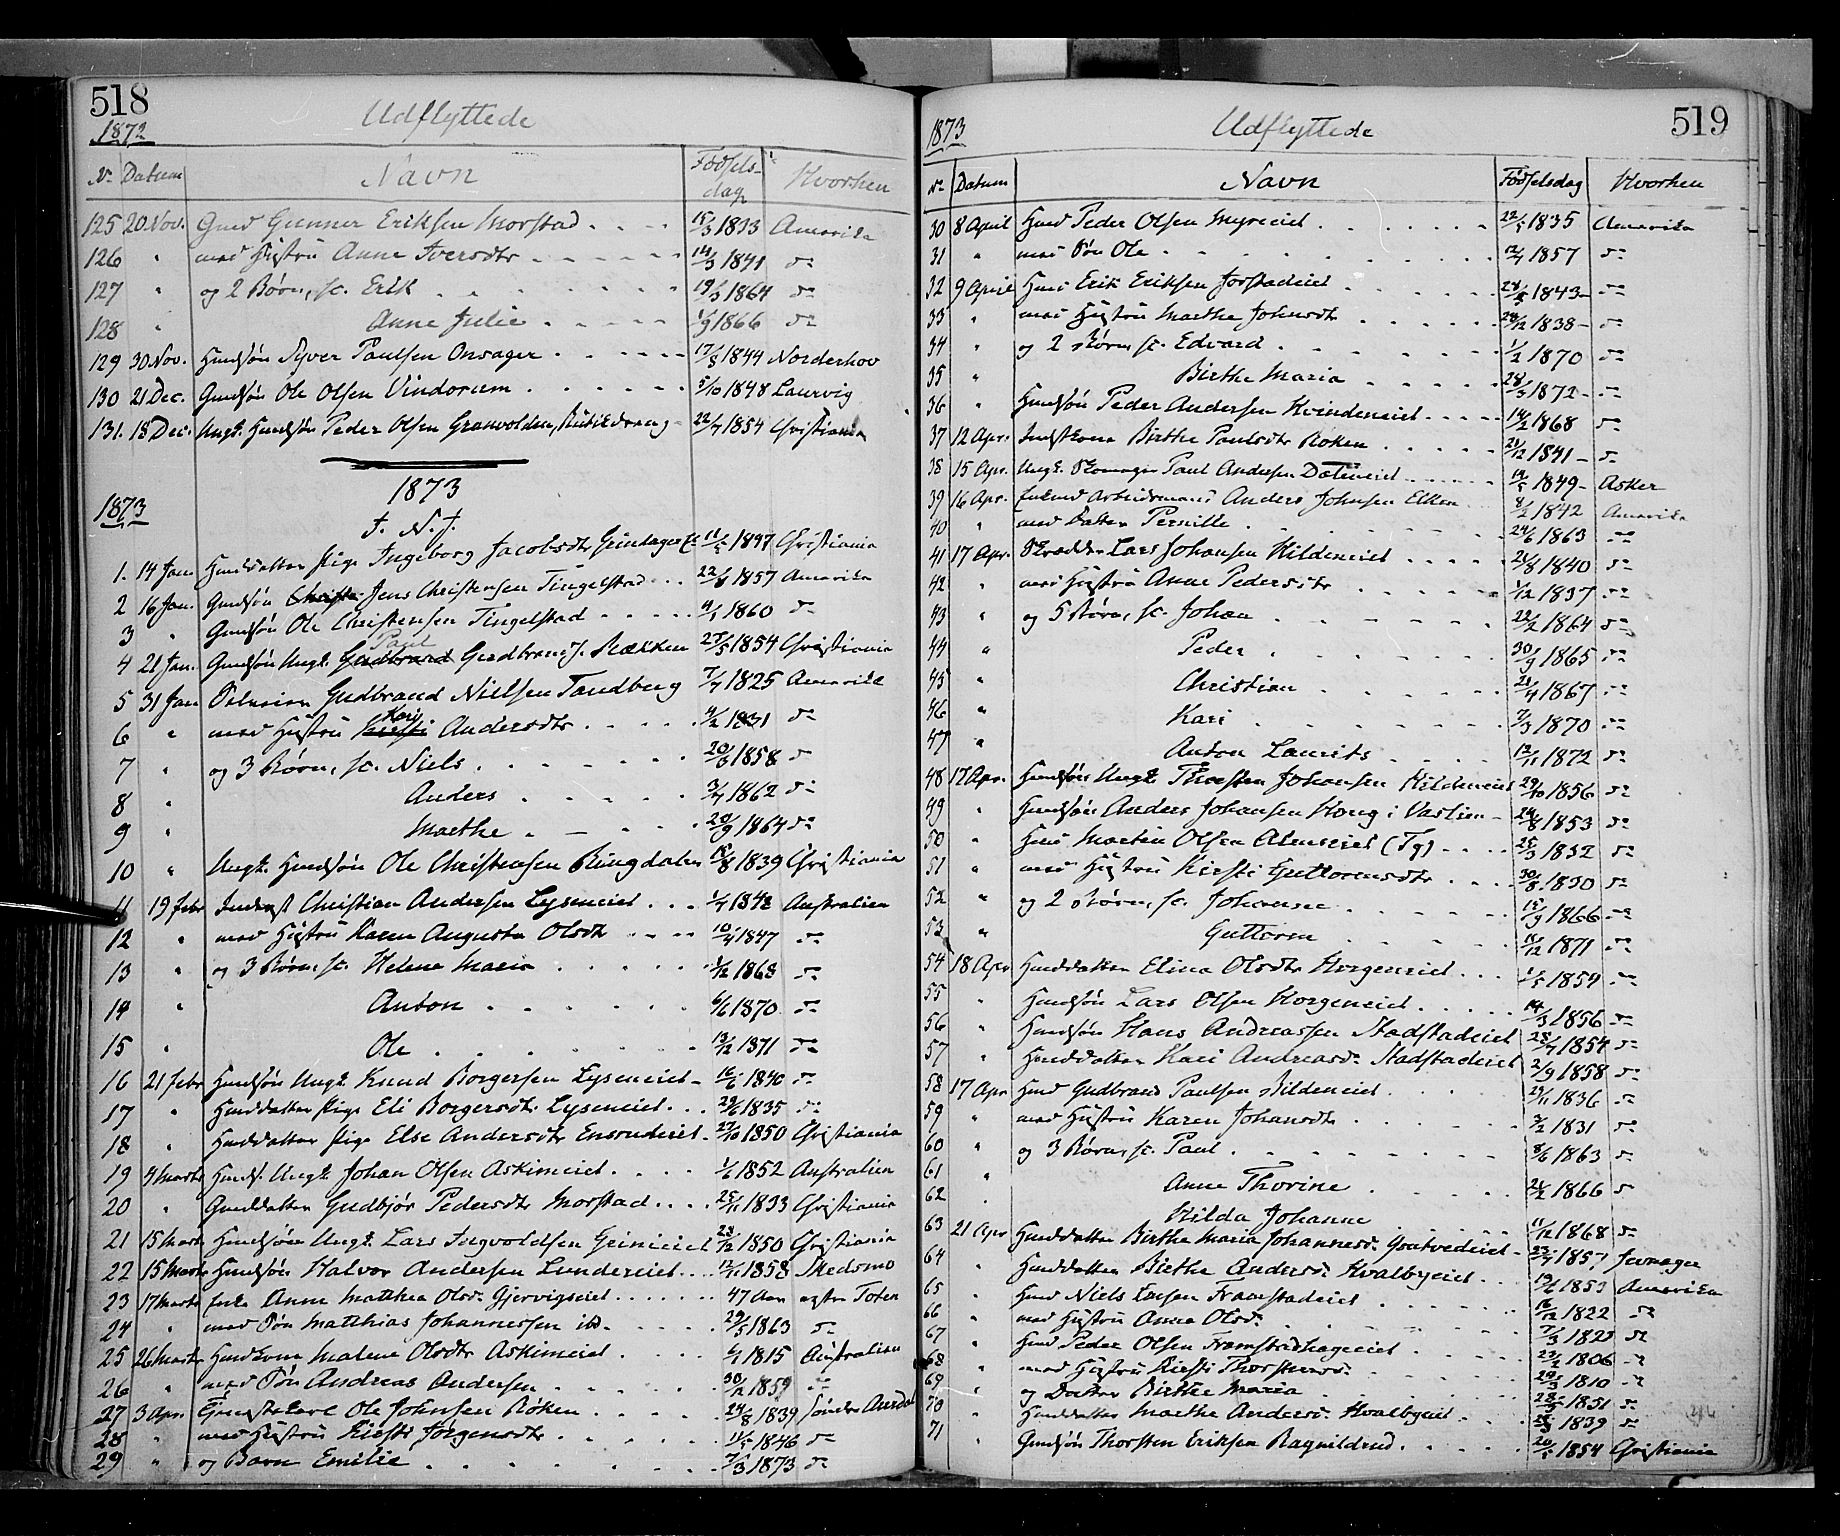 518
1872
Udflyttede
No Datum Navn Fødselsdag Hvorhen
125 20 Nov. Gmd Gunner Eriksen Morstad 15/3 1833 Amerika
126 " med Hustru Anne Iversdtr 14/3 1841 do
127 " og 2 Børn, sc. Erik 19/3 1864 do
128 " Anne Julie 1/9 1866 do
129 30 Nov. Husmdsøn Syver Paulsen Onsager 17/8 1844 Norderhov
130 21 Dec. Gmdsøn Ole Olsen Vindorum 5/10 1848 Laurvig
131. 18 Dec. Ungk. Husmdsøn Peder Olsen Granvolden, Butikdreng 22/7 1854 Christiania
1873
1873
I. N. J.
1. 14 Jan. Husmddatter Pige Ingeborg Jacobsdtr 11/5 1847 Christiania
2 16 Jan. Gmdsøn Jens Christensen Tingelstad 22/8 1857 Amerika
3 " Gmdsøn Ole Christensen Tingelstad 4/1 1860 do
4 21 Jan. Gmdsøn Ungk. Paul Gudbrands. Rækken 25/5 1854 Christiania
5 31 Jan Gudbrand Nielsen Tandberg 7/7 1825 Amerika
6 " med Hustru Kari Andersdtr 4/2 1831 do
7 " og 3 Børn, sc. Niels 20/6 1858 do
8 " Anders 3/7 1862 do
9 " Marthe 20/9 1864 do
10 " Ungk. Husmdsøn Ole Christensen Ringdalen 15/8 1839 Christiania
11 19 Febr Inderst Christian Andersen Lyseneiet 1/7 1842 Australien
12 " med Hustru Karen Augusta Olsdtr 10/4 1847 do
13 " og 3 Børn, sc. Helene Marie 1/12 1868 do
14 " Anton 6/6 1870 do
15 " Ole 13/12 1871 do
16 21 Febr Husmdsøn Ungk. Knud Borgersen Lyseneiet 16/6 1840 do
17 " Husmddatter Pige Eli Borgersdtr. Lyseneiet 29/6 1835 do
18 " Husmddatter Pige Else Andersdtr Ensrudeiet 27/10 1850 Christiania
19 4 Marts Husmds. Ungk. Johan Olsen Askimeiet 1/1 1852 Australien
20 " Gmddatter Gudbjør Pedersdtr Morstad 25/11 1833 Christiania
21 15 Marts Husmdsøn Ungk. Lars Ingvoldsen Grinieiet 23/12 1850 Christiania
22 15 Marts Husmdsøn Halvor Andersen Lundereiet 12/11 1858 Skedsmo
23 17 Marts Enke Anne Matthea Olsd. Gjervigseiet 47 Aar Toten
24 " med Søn Matthias Johannessen ibd. 29/5 1863 do
25 26 Marts Husmdkone Malene Olsdtr Askimeiet 6/1 1815 Australien
26 " med Søn Andreas Andersen 30/12 1859 do
27 3 Apr. Ole Johnsen Røken 24/8 1839 Søndre Aurdal
28 " med Hustru Kirsti Jørgensdtr 11/5 1846 do
29 " og Barn Emilie 7/3 1873 do
519
1873
Udflyttede
No Datum Navn Fødselsdag Hvorhen
30 8 April Husmd Peder Olsen Myreeiet 22/5 1835 Amerika
31 " med Søn Ole 12/4 1857 do
32 9 April Husmd Erik Eriksen Jorstadeiet 28/8 1843 do
33 " med Hustru Marthe Johnsdtr 24/12 1838 do
34 " og 2 Børn, sc. Edvard 1/2 1870 do
35 " Birthe Maria 28/3 1872 do
36 " Husmdsøn Peder Andersen Kvindeneiet 14/2 1868 do
37 12 Apr. Indstkone Birthe Paulsdtr Roken 21/12 1841 do
38 15 Apr. Ungk. Skomager Paul Andersen 19/5 1849 Asker
39 16 Apr. Enkemd Arbeidsmand Anders Johnsen Elken 8/2 1842 Amerika
40 " med Datter Pernille 24/6 1863 do
41 17 Apr. Skrædder Lars Johansen Hildeneiet 21/8 1840 do
42 " med Hustru Anne Pedersdtr 1/12 1837 do
43 " og 5 Børn, sc. Johan 22/2 1864 do
44 " Peder 30/9 1865 do
45 " Christian 21/4 1867 do
46 " Kari 7/3 1870 do
47 " Anton Laurits 12/11 1872 do
48 17 Apr. Husmdsøn Ungk. Thorsten Johansen Hildeneiet 29/10 1856 do
49 " Husmdsøn Anders Johansen Haug i Vestien 24/8 1853 do
50 " Husmd Martin Olsen Almseiet (Tg) 25/3 1832 do
51 " med Hustru Kirsti Guttormsdtr 30/8 1830 do
52 " og 2 Børn, sc. Johannes 15/9 1866 do
53 " Guttorm 11/12 1871 do
54 18 Apr Husmddatter Elina Olsdtr Horgeneiet 1/5 1854 do
55 " Husmdsøn Lars Olsen Horgeneiet 14/3 1856 do
56 " Husmdsøn Hans Andreassen Stadstadeiet 25/7 1854 do
57 " Husmddatter Kari Andreasd. Stadstadeiet 2/9 1858 do
58 17 Apr Husmd Gudbrand Paulsen Hildeneiet 29/11 1836 do
59 " med Hustru Karen Johansdtr 3/2 1831 do
60 " og 3 Børn, sc. Paul 8/6 1863 do
61 " Anne Thorine 21/2 1866 do
62 " Hilda Johanne 11/12 1868 do
63 21 Apr Husmddatter Birthe Maria Johannesd. 23/4 1857 Jevnager
64 " Husmddatter Birthe Andersd. Hvalbyeiet 19/6 1853 Amerika
65 " Husmd Niels Larsen Framstadeiet 16/12 1822 do
66 " med Hustru Anna Olsd. 7/3 1823 do
67 " Husmd Peder Olsen Framstadhageeiet 23/2 1806 do
68 " med Hustru Kirsti Thorstensd. 29/3 1810 do
69 " og Datter Birthe Maria 28/3 1851 do
70 " Husmddatter Marthe Andersd. Hvalbyeiet 28/3 1839 do
71 " Gmdsøn Thorsten Eriksen Ragnildrud 20/5 1854 Christiania